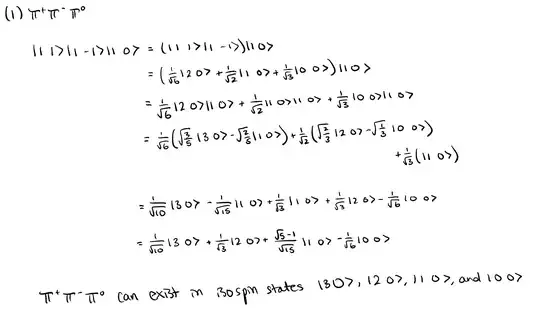 (1) π⁺π⁻π⁰
|1 1>|1 -1>|1 0> = (|1 1>|1 -1>)|1 0>
= (1/√6 |2 0> + 1/√2 |1 0> + 1/√3 |0 0>)|1 0>
= 1/√6 |2 0>|1 0> + 1/√2 |1 0>|1 0> + 1/√3 |0 0>|1 0>
= 1/√6 (√(3/5) |3 0> - √(2/5) |1 0>) + 1/√2 (√(2/3) |2 0> - √(1/3) |0 0>)
+ 1/√3 (|1 0>)
= 1/√10 |3 0> - 1/√15 |1 0> + 1/√3 |1 0> + 1/√3 |2 0> - 1/√6 |0 0>
= 1/√10 |3 0> + 1/√3 |2 0> + (√5-1)/√15 |1 0> - 1/√6 |0 0>
π⁺π⁻π⁰ can exist in isospin states |3 0>, |2 0>, |1 0>, and |0 0>